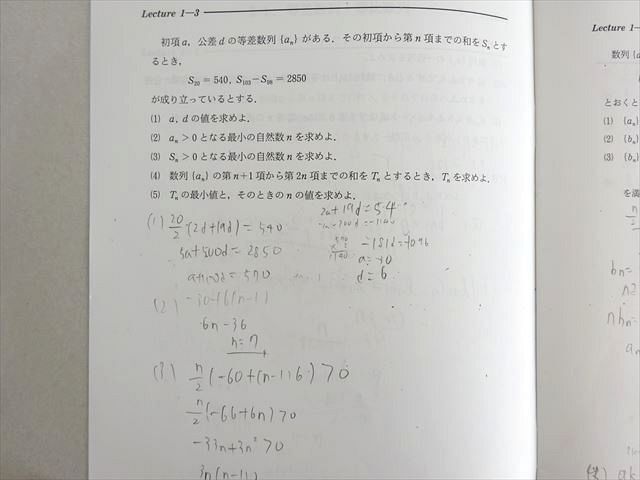 Lecture 1—3
初項a, 公差dの等差数列{aₙ}がある. その初項から第n項までの和をSₙとす
るとき,
S₂₀ = 540, S₁₀₃−S₉₈ = 2850
が成り立っているとする.
(1) a, dの値を求めよ.
(2) aₙ>0となる最小の自然数nを求めよ.
(3) Sₙ>0となる最小の自然数nを求めよ.
(4) 数列{aₙ}の第n+1項から第2n項までの和をTₙとするとき, Tₙを求めよ.
(5) Tₙの最小値と, そのときのnの値を求めよ.
2a+19d=54
(1) 20/2 (2a+19d) = 540
-181d=-1086
5a+500d=2850
a=-30
a+100d=570
d=6
(2) -30+6(n-1)
6n-36
n=7
(3) n/2 (-60+(n-1)6) > 0
n/2 (-66+6n) > 0
-33n+3n² > 0
3n(n-11)
Lecture 1—
数列{a
とおくと
(1) {aₙ}
(2) {bₙ}
(3) {bₙ}
を満
bn=
nbn=
an